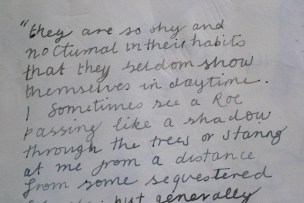 "they are so shy and
nocturnal in their habits
that they seldom show
themselves in daytime.
I Sometimes see a Roe
passing like a shadow
through the trees or staring
at me from a distance
from some sequestered
but generally